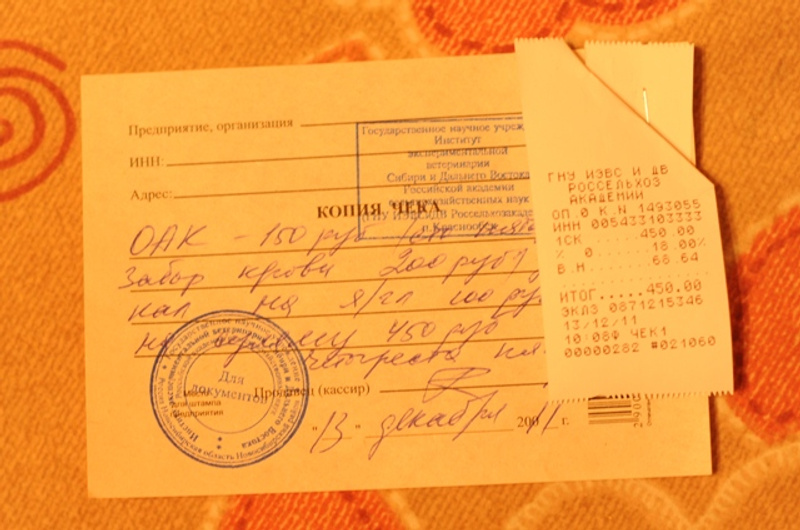 Предприятие, организация
ИНН:
Адрес:
Государственное научное учреж
Институт
экспериментальной
ветеринарии
Сибири и Дальнего Востока
Российской академии
сельскохозяйственных наук
(ГНУ ИЭВСиДВ Россельхозакаде
р.п. Краснообск
КОПИЯ ЧЕКА
ОАК - 150 руб
Забор крови 200 руб
кал на я/гл 100 ру
на 450 руб
Четыреста
Продавец (кассир)
Для
документов
для штампа
предприятия
"13" декабря 2011 г.
ГНУ ИЭВС И ДВ
РОССЕЛЬХОЗ
АКАДЕМИИ
ОП.0 К.N 1493055
ИНН 005433103333
1СК ......450.00
% 0 .....18.00%
В.Н. .....68.64
ИТОГ.....450.00
ЭКЛЗ 0871215346
13/12/11
10:08Ф ЧЕК1
00000282 #021060